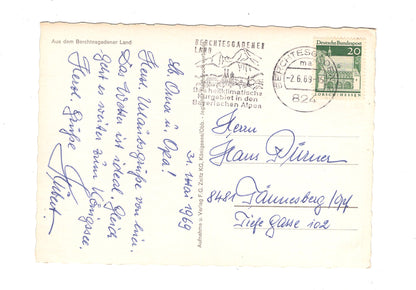 Aus dem Berchtesgadener Land
Lb. Oma u. Opa!
Herzl. Urlaubsgrüße von hier.
Das Wetter ist ideal. Gleich
geht es weiter zum Königssee.
Herzl. Grüße
31. Mai 1969
Aufnahme u. Verlag F. G. Zeitz KG, Königssee/Obb.
BERCHTESGADENER
LAND
Heilklimatische
Kurgebiet in den
Bayerischen Alpen
BERCHTESGADEN
-2.6.69
824
Deutsche Bundespost
20
LORSCH/HESSEN
Herrn
Hans Dürner
8481 Tännesberg/Opf
Tiefe Gasse 102